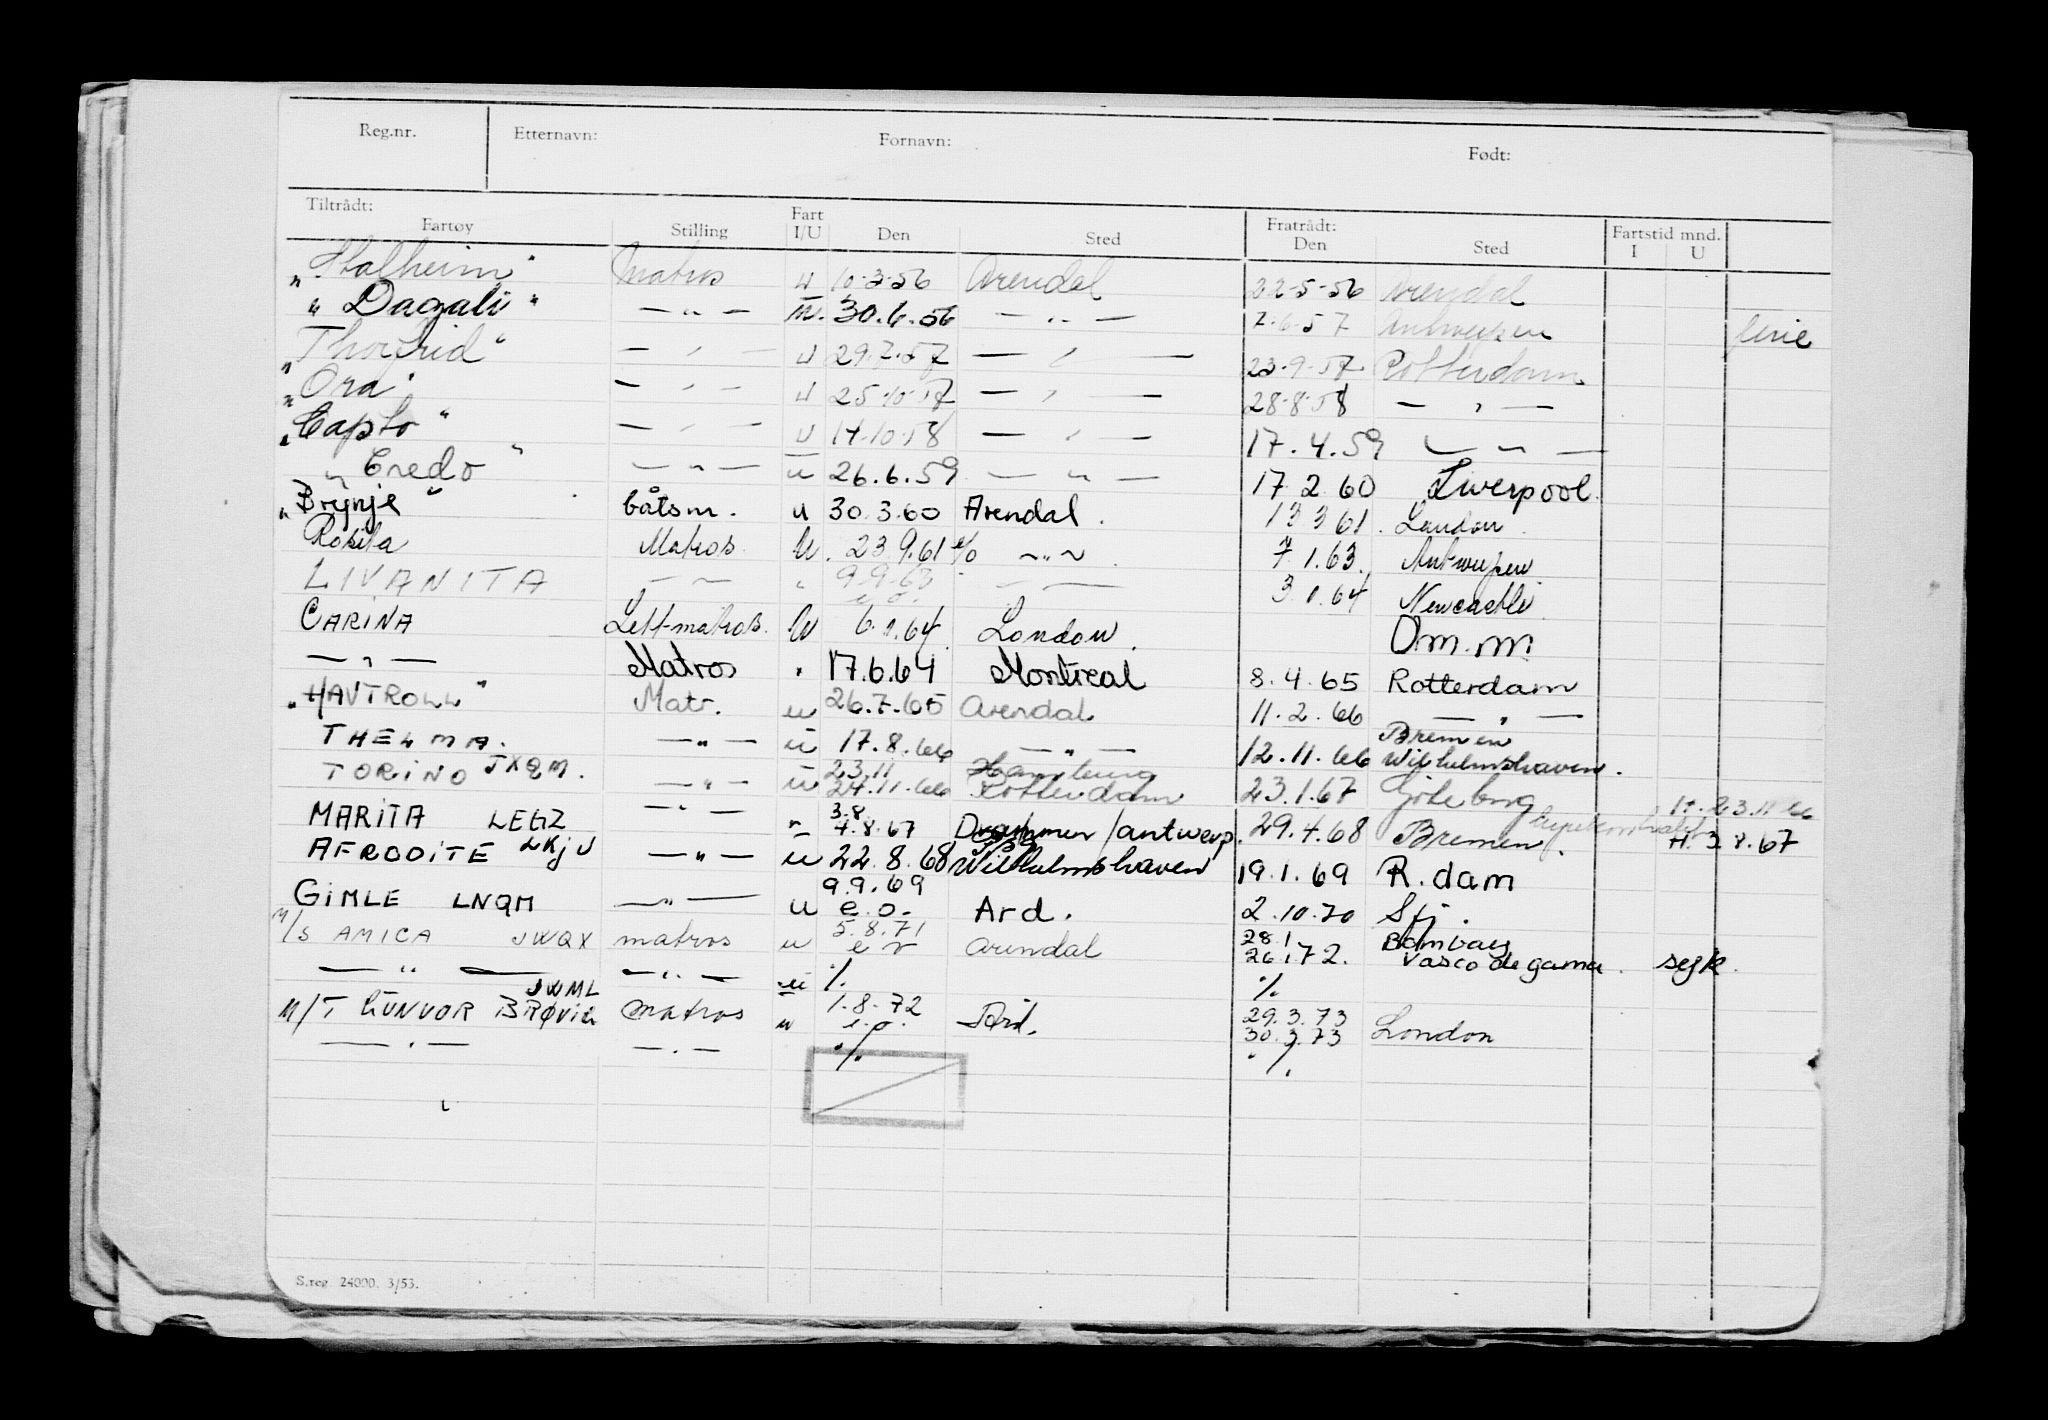 Reg.nr. Etternavn: Fornavn: Født:
Tiltrådt: Fratrådt: Fartstid mnd.
Fartøy Stilling Fart I/U Den Sted Den Sted I U
"Stalheim" Matros u 10-3-56 Arendal 22-5-56 Arendal
"Dagali" — " — u. 30.6.56 — " — 7-6-57 Antwerpen ferie
"Thorfrid" — " — u 29.7.57 — " — 23-9-57 Rotterdam
"Ora" — " — u 25-10-57 — " — 28-8-58 — " —
"Capto" — " — u 14-10-58 — " — 17.4.59 — " —
"Credo" — " — u 26.6.59 — " — 17 2 60 Liverpool.
"Brynje" båtsm. u 30.3.60 Arendal. 13 3 61. London.
Rosita Matros. U. 23.9.61 e/o — " — 7.1.63. Antwerpen
LIVANITA — " — " 9.9.63 e.o. — " — 3.1.64 Newcastle
CARINA Lett-matros. U 6.1.64 London. Om.m.
— " — Matros " 17.6.64 Montreal 8.4.65 Rotterdam
"HAVTROLL" Matr. u 26.7.65 Arendal 11.2.66 — " —
THELMA. — " — u 17.8.66 — " — 12.11.66 Bremen Wilhelmshaven.
TORINO JXQM. — " — u 23.11 24.11.66 Hamburg Rotterdam 23.1.67 Göteborg H. 23.11.66
MARITA LEGZ — " — " 3.8. 4.8.67 Drammen/antwerp. 29.4.68 Bremen. H. 3.8.67
AFRODITE LKJU — " — u 22.8.68 Wilhelmshaven 19.1.69 R.dam
GIMLE LNQM — " — u 9.9.69 e.o. Ard. 2.10.70 Sfj.
M/S AMICA JWQX matros u 5.8.71 e r arendal 28.1 26.1.72. Bombay Vasco de gama. sejk.
— " — — " — u % %
M/T GUNVOR BRØVIG JWML matros u 1.8.72 e.o. Ard. 29.3.73 30.3.73 London
— " — — " — % %
S.reg. 24000. 3/53.